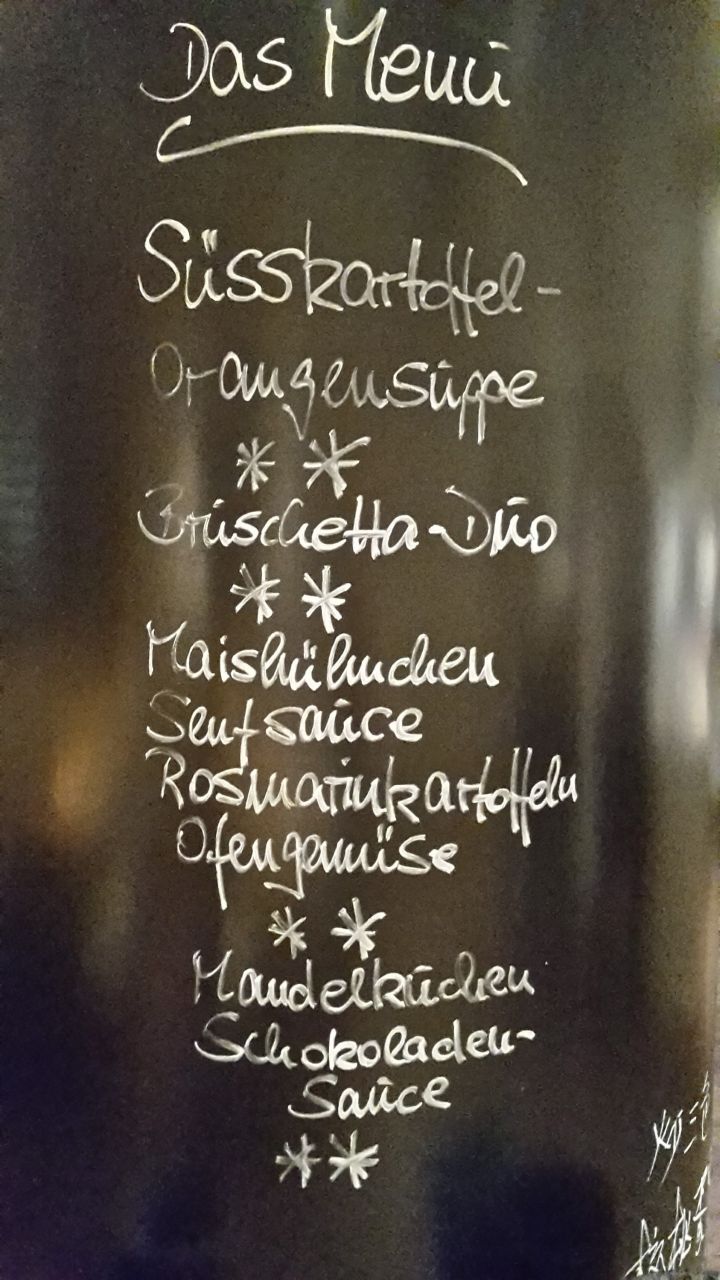 Das Menü
Süsskartoffel-
Orangensuppe
* *
Bruschetta-Duo
* *
Maishühnchen
Senfsauce
Rosmarinkartoffeln
Ofengemüse
* *
Mandelkuchen
Schokoladen-
Sauce
* *